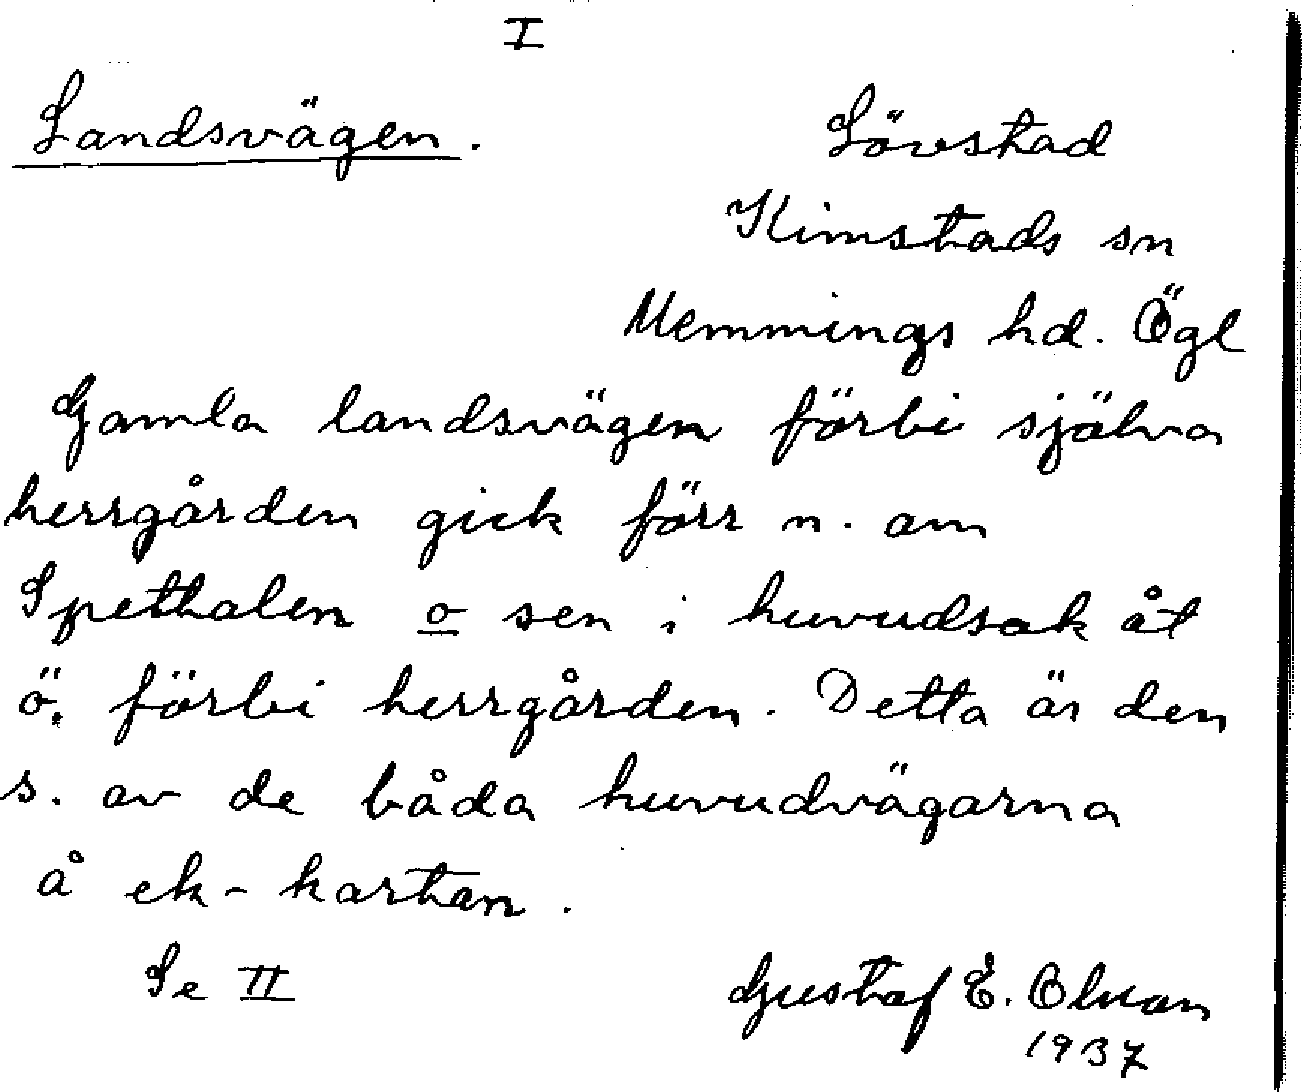 I
Landsvägen.
Lövstad
Kimstads sn
Memmings hd. Ögl
Gamla landsvägen förbi själva
herrgården gick förr n. om
Spethalen o sen i huvudsak åt
ö. förbi herrgården. Detta är den
s. av de båda huvudvägarna
å ek-kartan.
Se II
Gustaf E.
1937